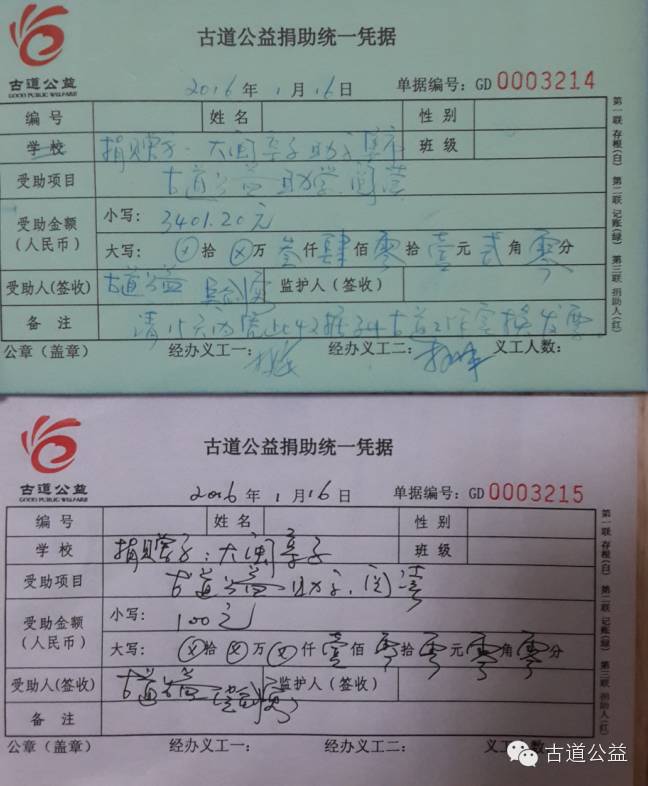 古道公益
GOOD PUBLIC WELFARE
古道公益捐助统一凭据
2016年1月16日 单据编号：GD 0003214
编号 姓名 性别
学校 捐赠方：大闽亲子 班级
受助项目 古道公益助学
受助金额（人民币） 小写：3401.20元
大写：⊗拾⊗万叁仟肆佰零拾壹元贰角零分
受助人(签收) 古道公益 监护人（签收）
备注
公章（盖章） 经办义工一： 经办义工二： 义工人数：
第一联 存根(白) 第二联 记账(绿) 第三联 捐助人(红)
古道公益
GOOD PUBLIC WELFARE
古道公益捐助统一凭据
2016年1月16日 单据编号：GD 0003215
编号 姓名 性别
学校 捐赠方：大闽亲子 班级
受助项目 古道公益助学
受助金额（人民币） 小写：100元
大写：⊗拾⊗万⊗仟壹佰零拾零元零角零分
受助人(签收) 古道公益 监护人（签收）
备注
公章（盖章） 经办义工一： 经办义工二： 义工人数
第一联 存根(白) 第二联 记账(绿) 第三联 捐助人(红)
古道公益